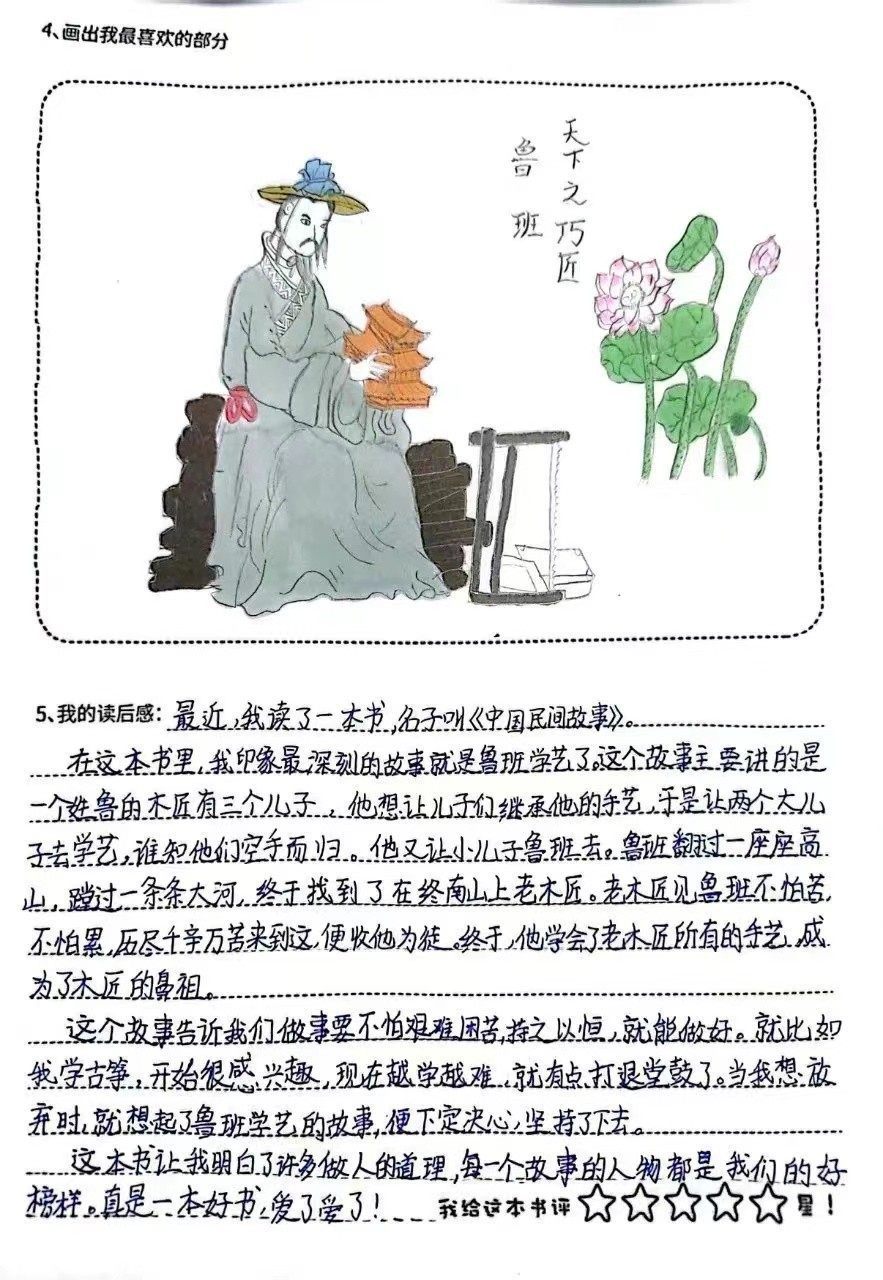 4、画出我最喜欢的部分
天下之巧匠
鲁班
5、我的读后感：最近，我读了一本书，名子叫《中国民间故事》。
在这本书里，我印象最深刻的故事就是鲁班学艺了。这个故事主要讲的是
一个姓鲁的木匠有三个儿子，他想让儿子们继承他的手艺，于是让两个大儿
子去学艺，谁知他们空手而归。他又让小儿子鲁班去。鲁班翻过一座座高
山，蹚过一条条大河，终于找到了在终南山上老木匠。老木匠见鲁班不怕苦，
不怕累，历尽千辛万苦来到这，便收他为徒。终于，他学会了老木匠所有的手艺，成
为了木匠的鼻祖。
这个故事告诉我们做事要不怕艰难困苦，持之以恒，就能做好。就比如
我学古筝，开始很感兴趣，现在越学越难，就有点打退堂鼓了。当我想放
弃时，就想起了鲁班学艺的故事，便下定决心，坚持了下去。
这本书让我明白了许多做人的道理，每一个故事的人物都是我们的好
榜样。真是一本好书，爱了爱了！我给这本书评☆☆☆☆☆星！